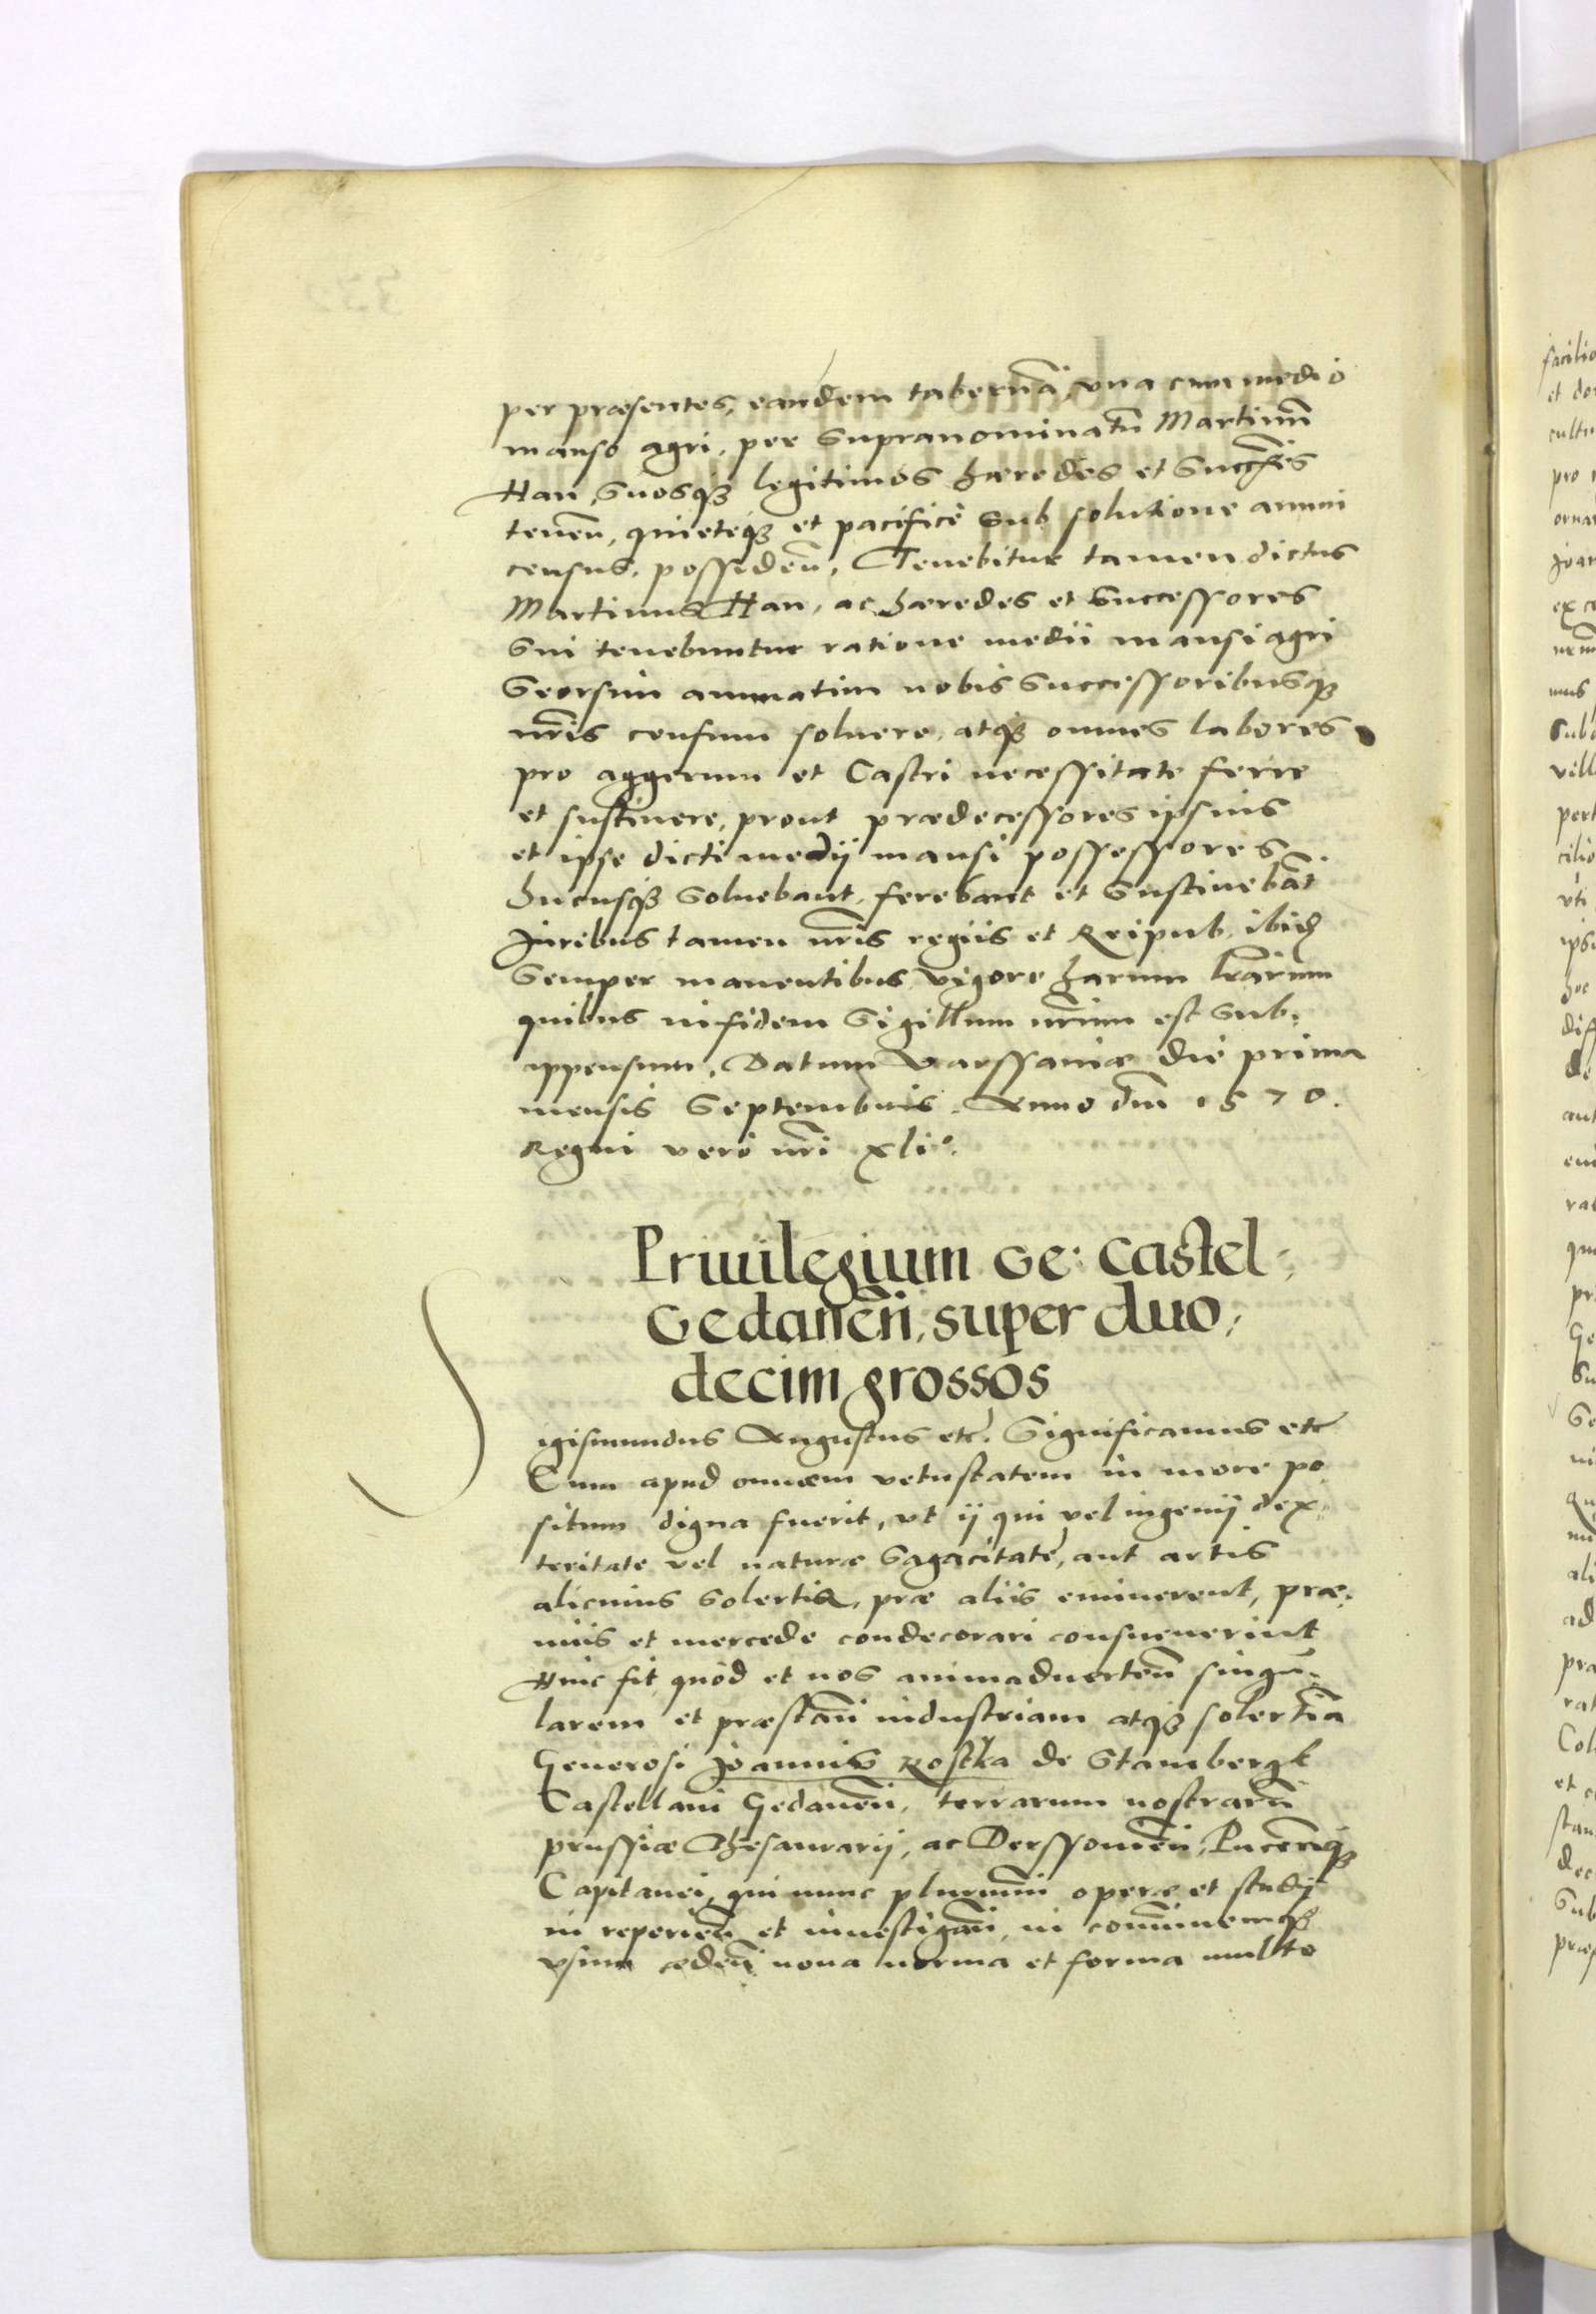 per præsentes, eandem tabernā, vna cum medio
manso agri, per supranominatū Martinū
Han, suosqꝫ legitimos hæredes et succ̄res
tenen̄, quieteqꝫ et pacificè sub solutione annui
census, possiden̄, Tenebitur tamen dictus
Martinus Han, ac hæredes et successores
sui tenebuntur ratione medii mansi agri
seorsim annuatim nobis successoribusqꝫ
nr̄is censum soluere, atqꝫ omnes labores
pro aggerum et Castri necessitate ferre
et sustinere, prout prædecessores ipsius
et ipse dicti medij mansi possessores
hucusqꝫ soluebant, ferebant et sustinebāt
Juribus tamen nr̄is regiis et Reipub. ibid
semper manentibus vigore harum lr̄arum
quibus in fidem sigillum nr̄um est sub,
appensum, Datum Varssauiæ die prima
mensis Septembris. Anno dn̄i 1570.
Regni verò nr̄i xli°.
Priuilegium Ge: Castel,
Gedanēn, super duo,
decim grossos
Sigismundus Augustus etc. Significamus etc
Cum apud omnem vetustatem in more po
situm digna fuerit, vt ij qui vel ingenij dex,
teritate vel naturæ sagacitate, aut artis
alicuius solertia, præ aliis eminerent, præ,
miis et mercede condecorari consueuerint
Hinc fit quòd et nos animaduerten̄ singu,
larem et præstan̄ industriam atqꝫ solertiā
Generosi Joannis Rostka de Stambergk
Castellani Gedanen̄, terrarum nostrarū
prussiæ Thesaurarij, ac Derssouien̄, Pucen̄qꝫ
Capitanei, qui nunc plurimū operæ et studij
in reperien̄ et inuestigan̄, in com̄unemqꝫ
vsum æden̄ noua norma et forma multo